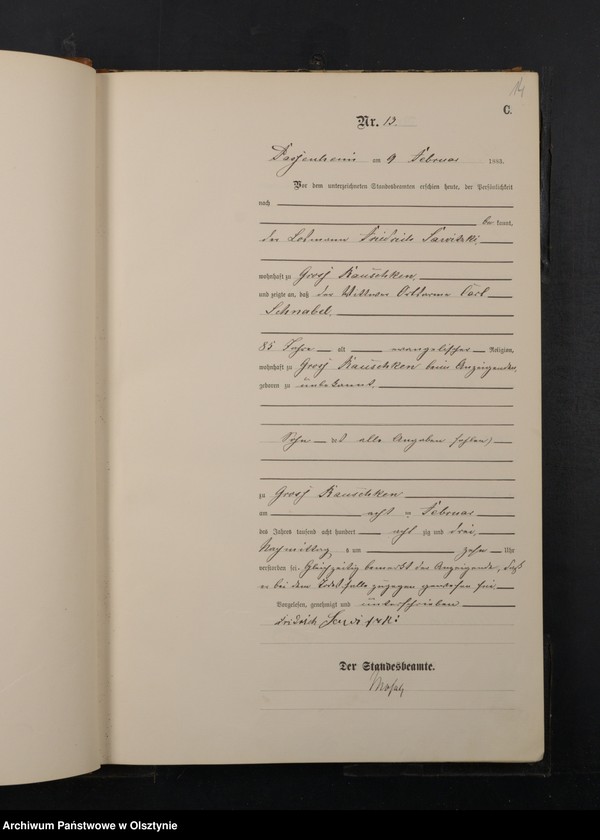 14
C.
Nr. 13.
Passenheim am 9 Februar 1883.
Vor dem unterzeichneten Standesbeamten erschien heute, der Persönlichkeit
nach
bekannt,
der Losmann Fridrich
wohnhaft zu Groß Rauschken,
und zeigte an, daß der Wittwer Ortsarme Carl
Schnabel,
85 Jahre alt evangelischer Religion,
wohnhaft zu Groß Rauschken beim Anzeigenden,
geboren zu unbekannt,
Sohn alle Angaben fehlen)
zu Groß Rauschken
am acht Februar
des Jahres tausend acht hundert acht zig und drei,
Nachmittag um zehn Uhr
verstorben sei. Gleichzeitig bemerkt der Anzeigende, daß
er bei dem Todesfalle zugegen gewesen sei.
Vorgelesen, genehmigt und unterschrieben
Fridrich
Der Standesbeamte.
Archiwum Państwowe w Olsztynie